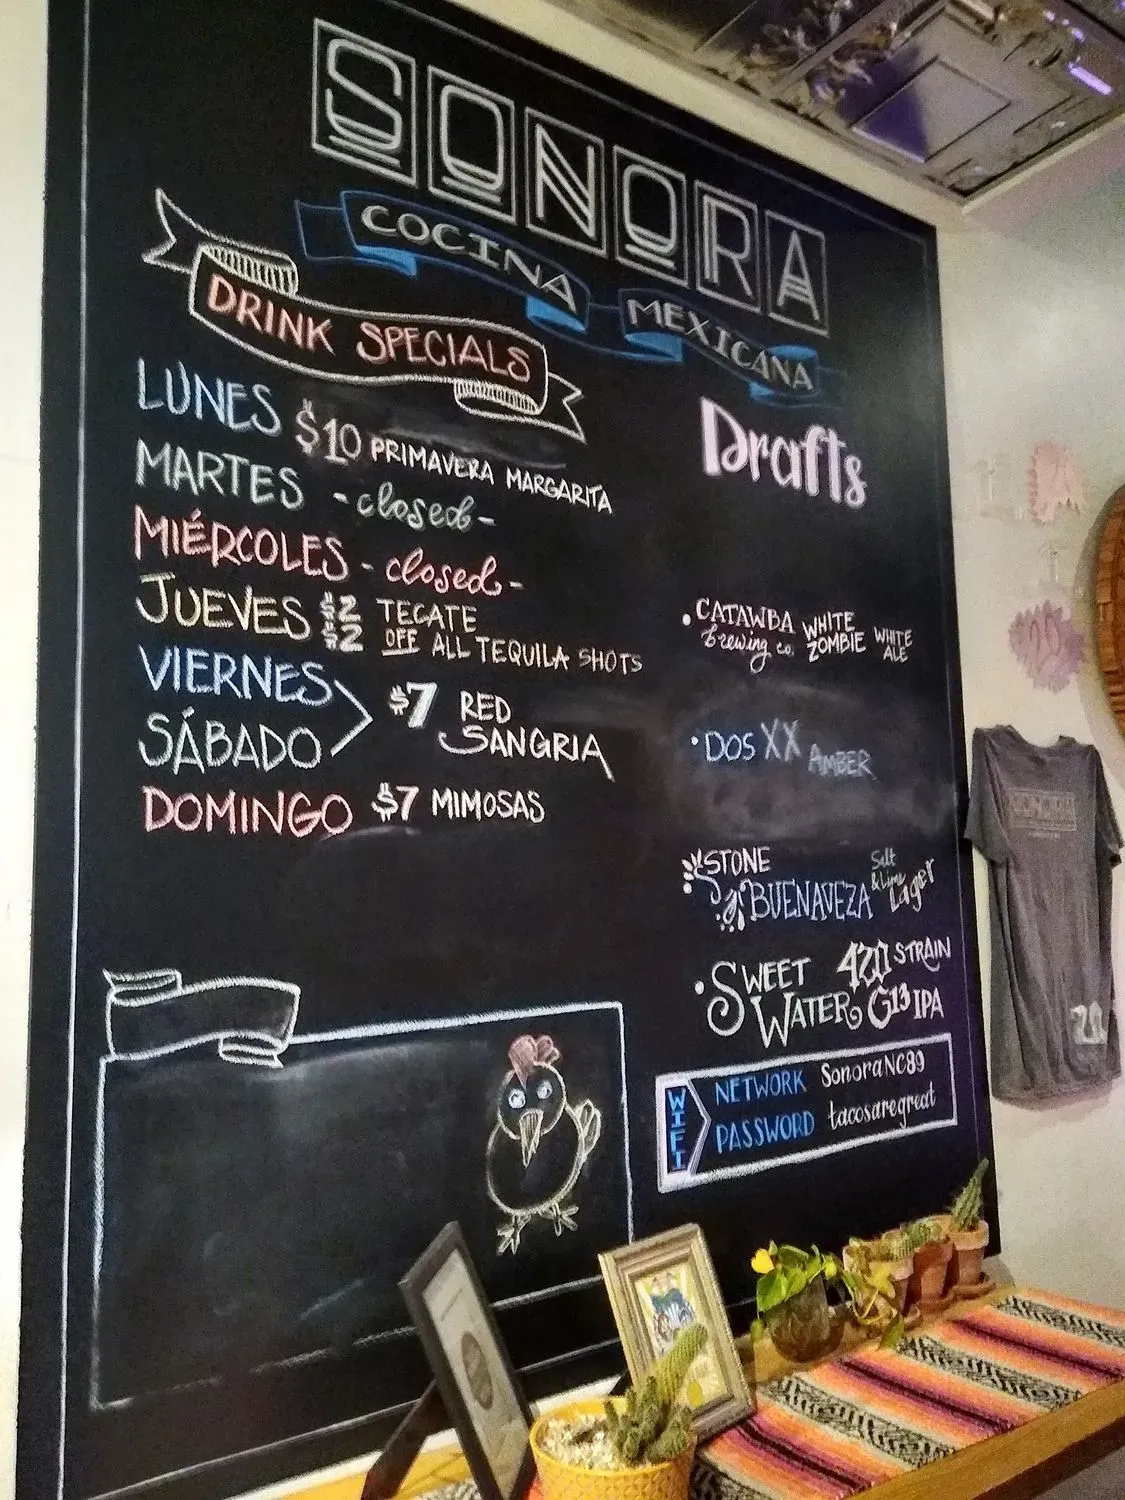 SONORA
COCINA MEXICANA
DRINK SPECIALS
LUNES $10 PRIMAVERA MARGARITA
MARTES -closed-
MIÉRCOLES -closed-
JUEVES $2 TECATE
$2 OFF ALL TEQUILA SHOTS
VIERNES
SÁBADO
$7 RED
SANGRIA
DOMINGO $7 MIMOSAS
Drafts
• CATAWBA WHITE
brewing co. ZOMBIE WHITE
ALE
• DOS XX AMBER
STONE
BUENAVEZA Salt
& Lime
Lager
• SWEET 420 STRAIN
WATER G13 IPA
WIFI
NETWORK SonoraNC89
PASSWORD tacosaregreat
SONORA